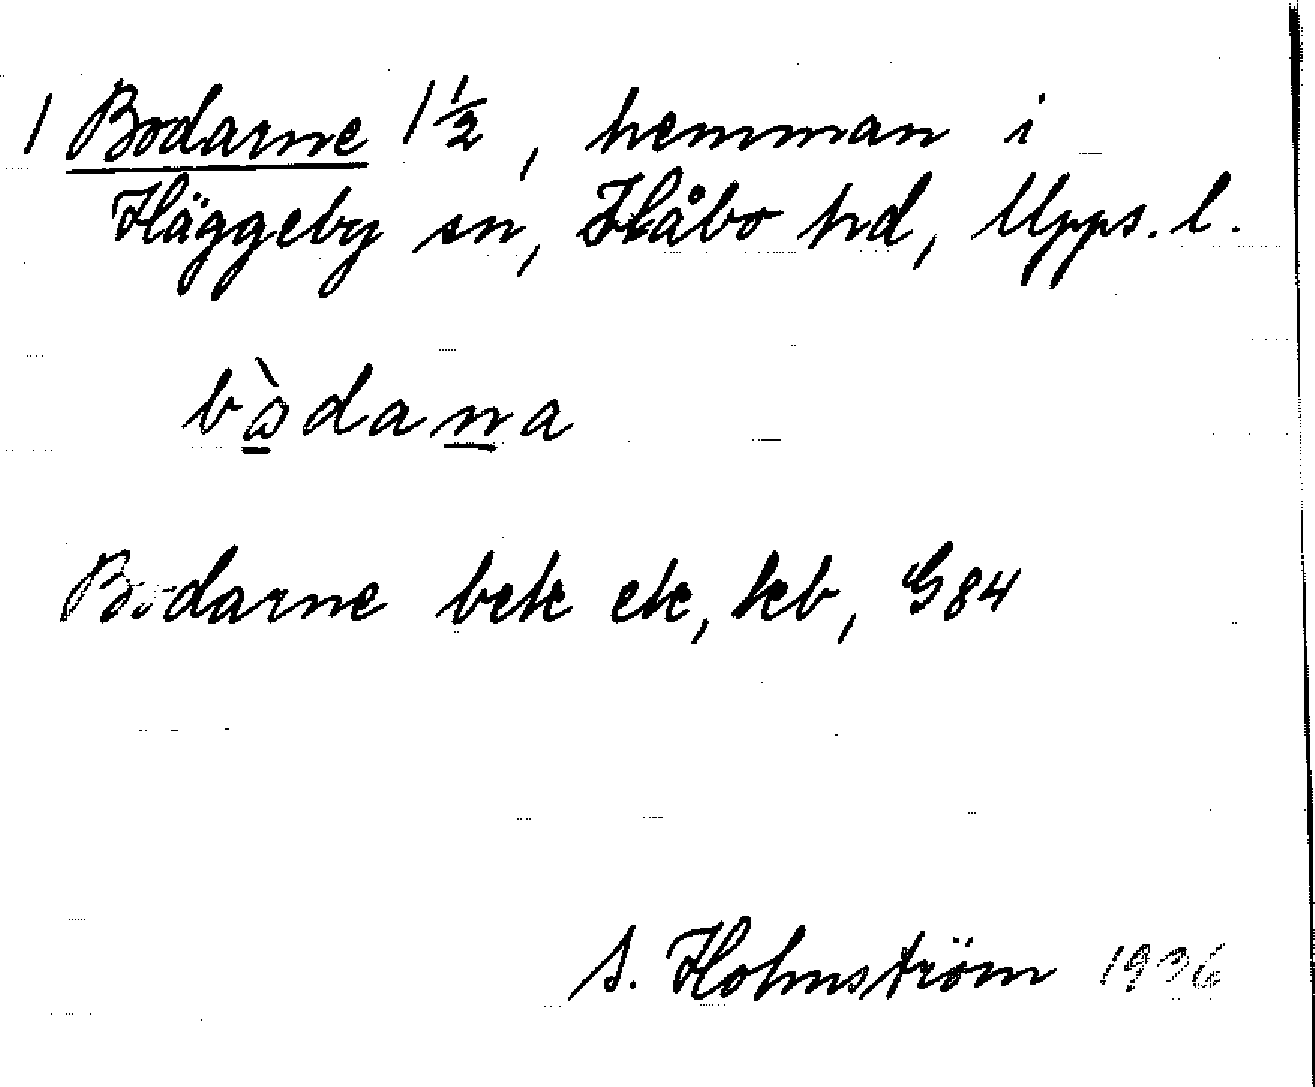 1 Bodarne 1 1/2, hemman i
Häggeby sn, Håbo hd, Upps. l.
bò̱dana̱
Bodarne bek ek, kb, G84
S. Holmström 1936